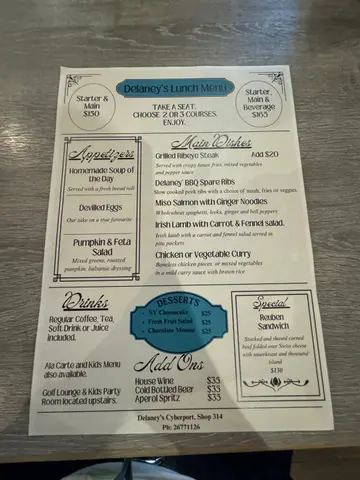 Delaney's Lunch Menu
Starter &
Main
$150
TAKE A SEAT.
CHOOSE 2 OR 3 COURSES.
ENJOY.
Starter,
Main &
Beverage
$165
Appetizers
Homemade Soup of
the Day
Served with a fresh bread roll
Devilled Eggs
Our take on a true favourite
Pumpkin & Feta
Salad
Mixed greens, roasted
pumpkin, balsamic dressing
Main Dishes
Grilled Ribeye Steak Add $20
Served with crispy house fries, mixed vegetables
and pepper sauce
Delaney' BBQ Spare Ribs
Slow cooked pork ribs with a choice of mash, fries or veggies
Miso Salmon with Ginger Noodles
Wholewheat spaghetti, leeks, ginger and bell peppers
Irish Lamb with Carrot & Fennel salad.
Irish lamb with a carrot and fennel salad served in
pita pockets
Chicken or Vegetable Curry
Boneless chicken pieces or mixed vegetables
in a mild curry sauce with brown rice
Drinks
Regular Coffee, Tea,
Soft Drink or Juice
included.
Ala Carte and Kids Menu
also available.
Golf Lounge & Kids Party
Room located upstairs.
DESSERTS
NY Cheesecake $25
Fresh Fruit Salad $25
Chocolate Mousse $25
Add Ons
House Wine $35
Cold Bottled Beer $35
Aperol Spritz $35
Special
Reuben
Sandwich
Stacked and shaved corned
beef folded over Swiss cheese
with sauerkraut and thousand
island
$130
Delaney's Cyberport, Shop 314
Ph: 26771126